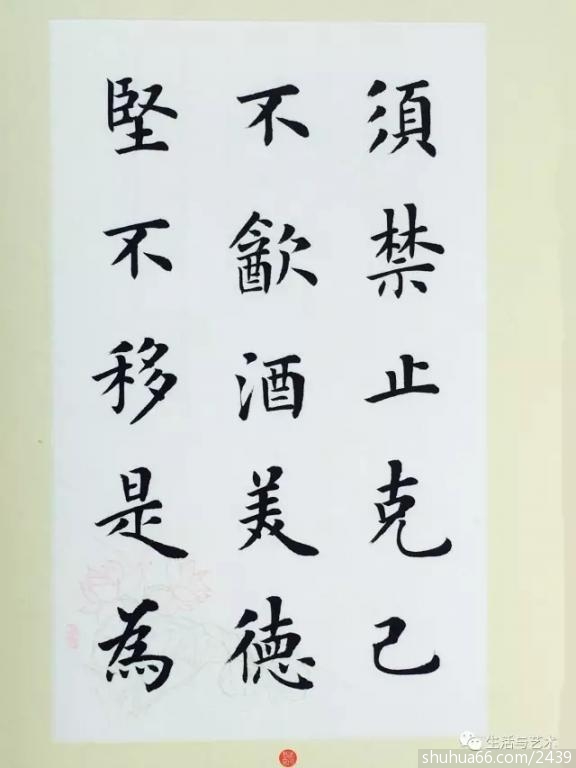 須禁止克己
不歙酒美德
堅不移是為
生活与艺术
shuhua66.com/2439